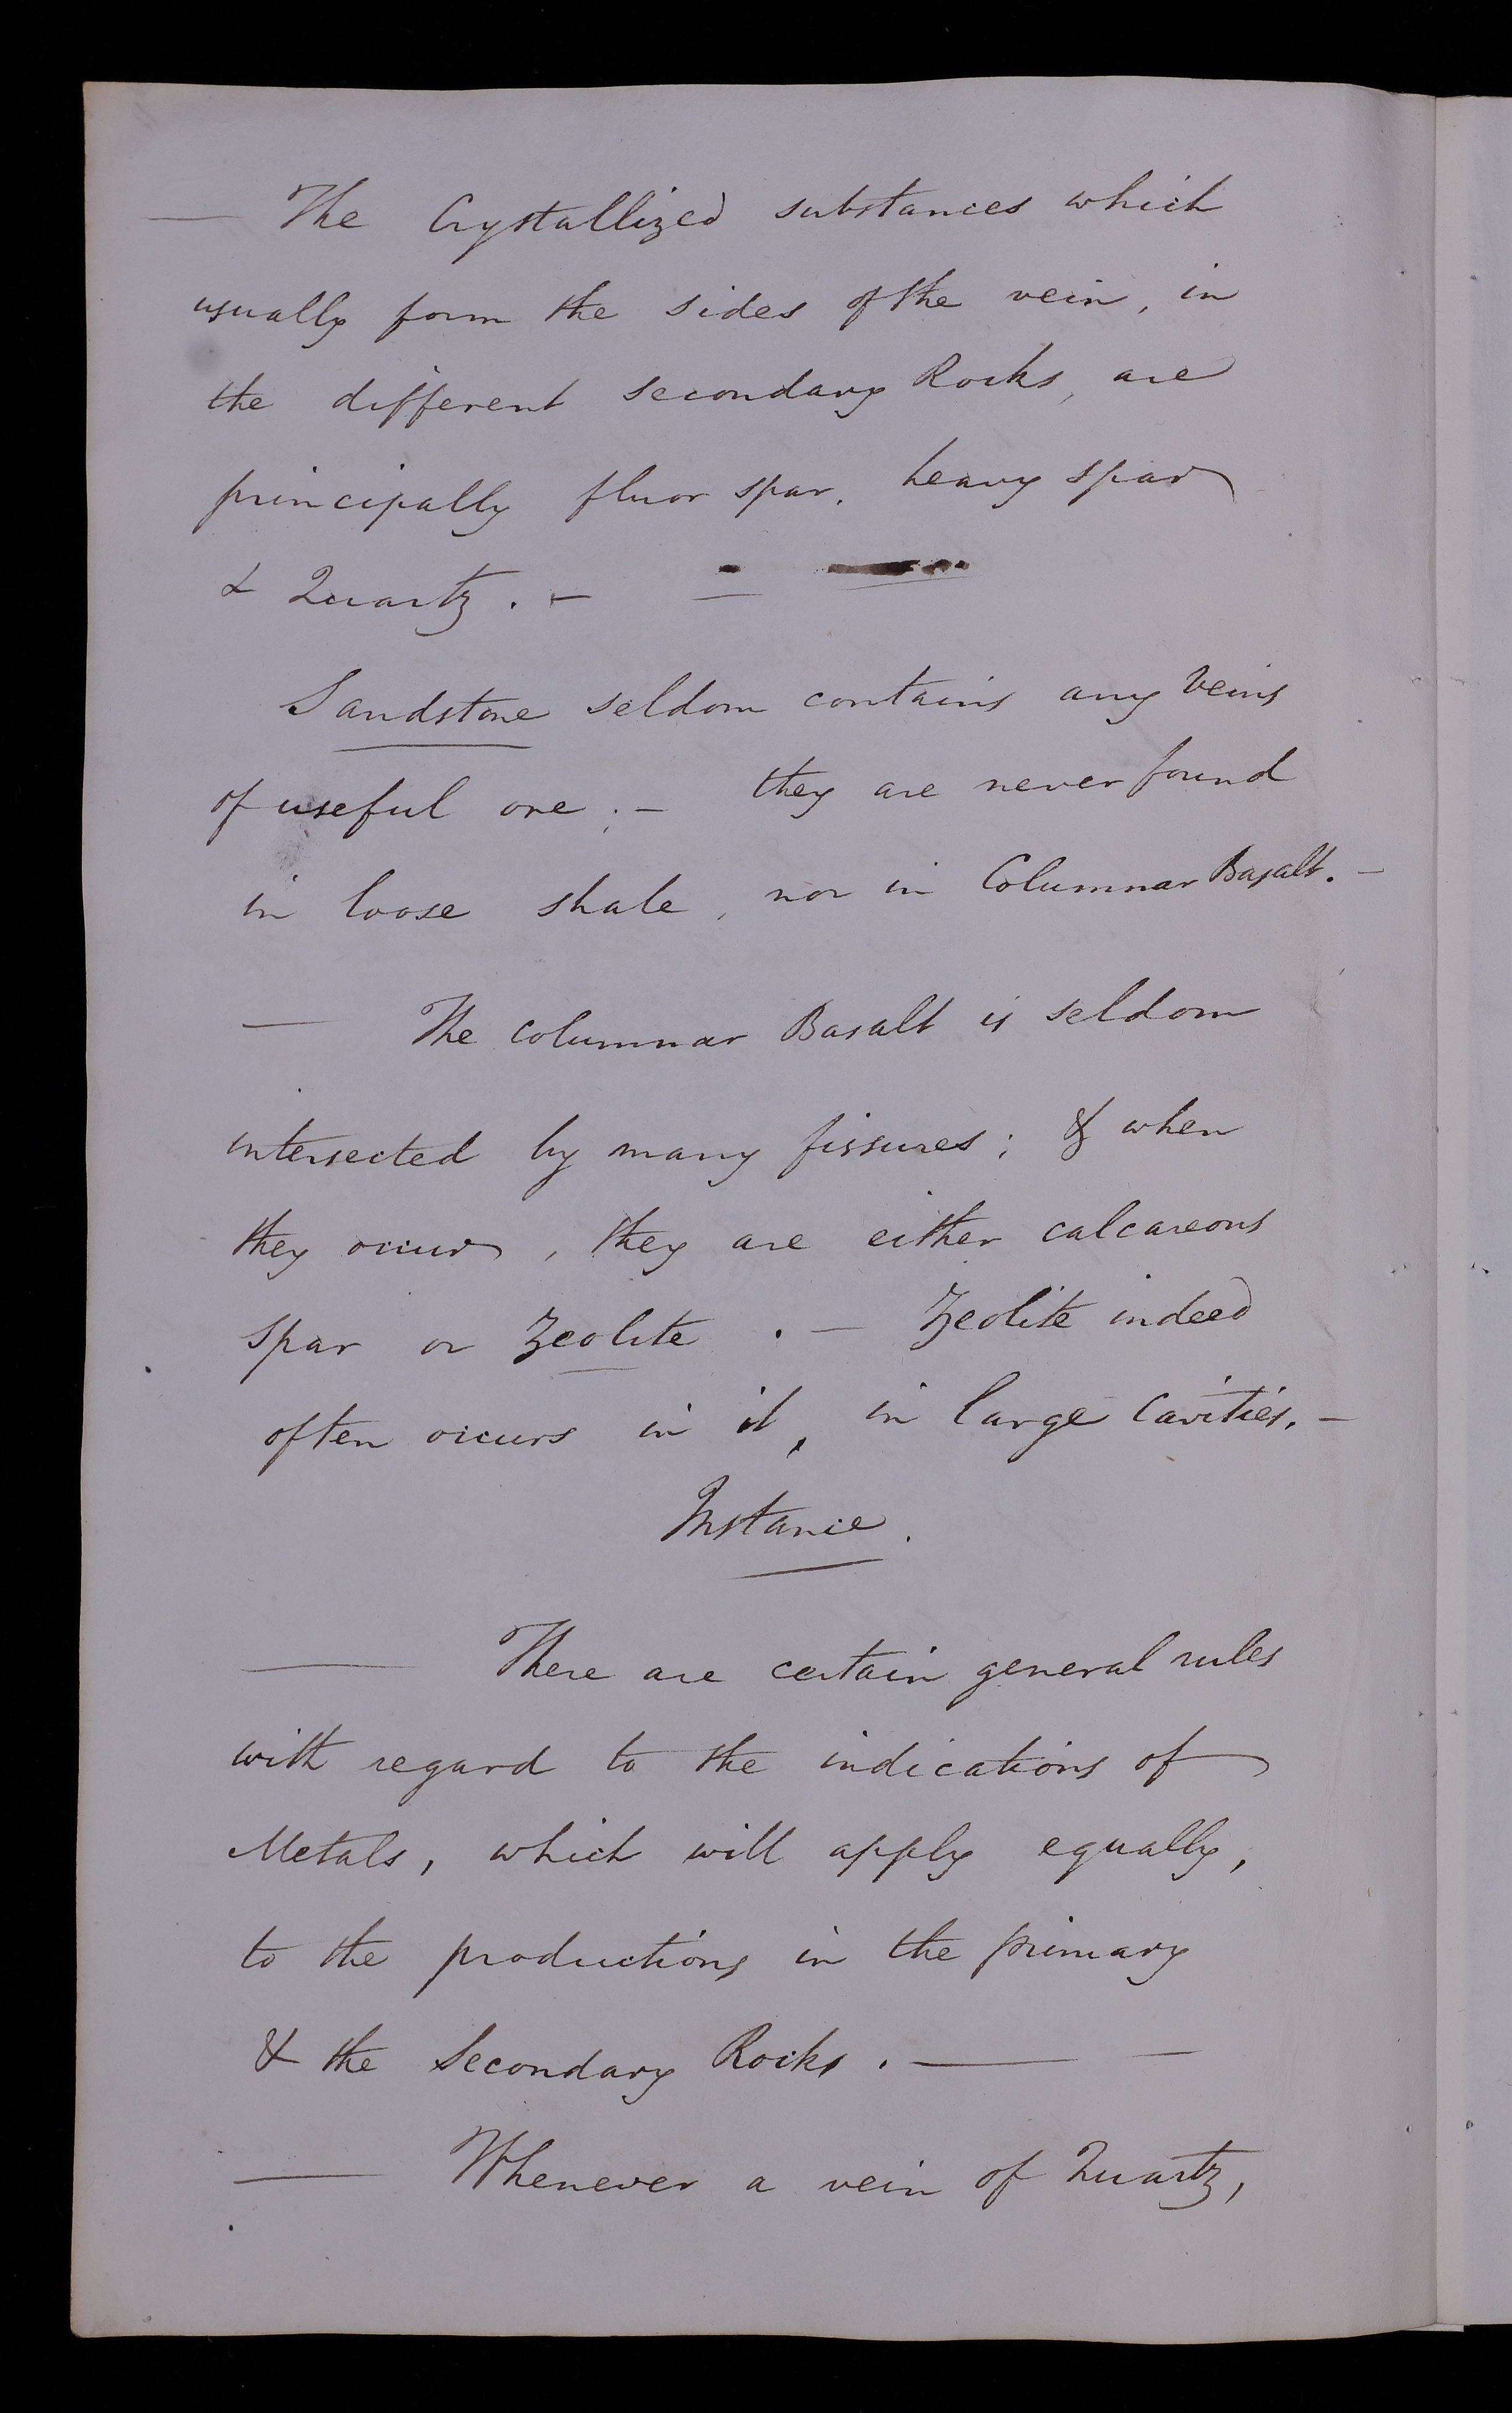 — The Crystallized substances which
usually form the sides of the vein, in
the different secondary Rocks, are
principally fluor spar, heavy spar
& Quartz. — —
Sandstone seldom contains any veins
of useful ore; — they are never found
in loose shale, nor in Columnar Basalt. —
— The columnar Basalt is seldom
intersected by many fissures; & when
they occur, they are either calcareous
spar or Zeolite. — Zeolite indeed
often occurs in it, in large Cavities. —
Instance.
— There are certain general rules
with regard to the indications of
Metals, which will apply equally,
to the productions in the primary
& the Secondary Rocks. — —
— Whenever a vein of Quartz,